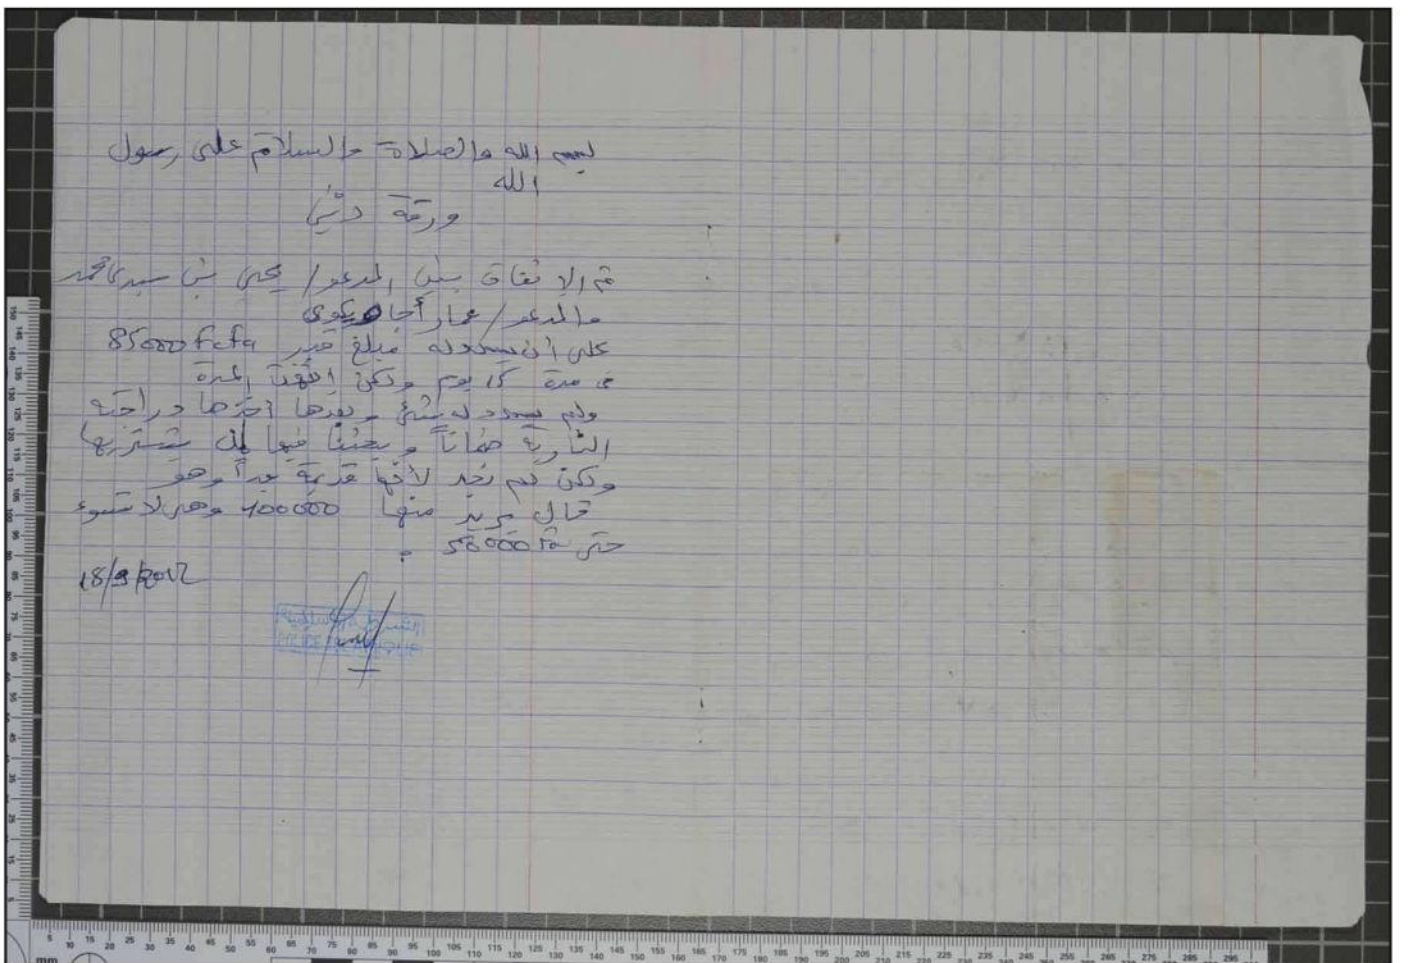 بسم الله والصلاة والسلام على رسول
الله
ورقة دين
تم الاتفاق بين المدعو/ يحي بن سيدي محمد
والمدعو/ عمار أجا
على أن يسدد له مبلغ قدر 85000 fcfa
في مدة 15 يوم ولكن انتهت المدة
ولم يسدد له شئ وبعدها أخذها دراجته
النارية ضمانا وبحثنا فيها لمن يشتريها
ولكن لم نجد لأنها قديمة جداً وهو
قال يريد منها 400000 وهي لا تسوء
حتى 50000
18/9/2012
الشرطة الإسلامية
POLICE ISLAMIQUE